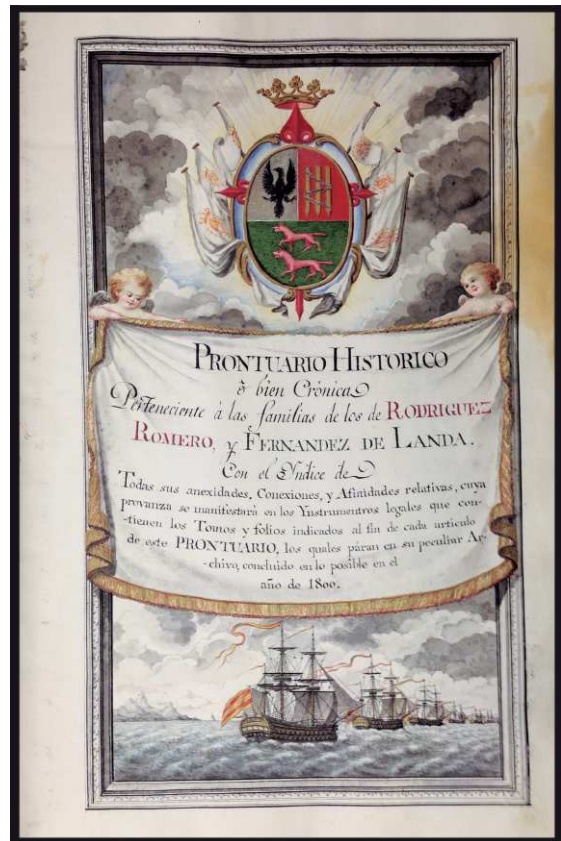 PRONTUARIO HISTORICO
ò bien Crònica
Perteneciente à las familias de los de RODRIGUEZ
ROMERO, y FERNANDEZ DE LANDA.
Con el Yndice de
Todas sus anexidades, Conexiones, y Afinidades relativas, cuya
provanza se manifestarà en los Ynstrumentros legales que con-
-tienen los Tomos y folios indicados al fin de cada articulo
de este PRONTUARIO, los quales pàran en su peculiar Ar-
-chivo, concluido en lo posible en el
año de 1800.